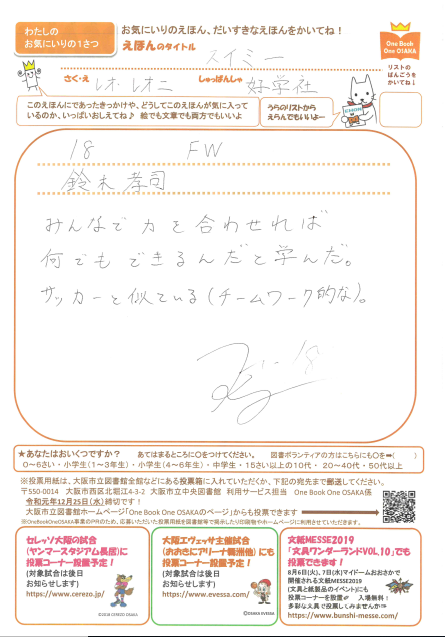 わたしの
お気にいりの１さつ
お気にいりのえほん、だいすきなえほんをかいてね！
えほんのタイトル
スイミー
One Book
One OSAKA
リストの
ばんごうを
かいてね↓
さく・え
レオ・レオニ
しゅっぱんしゃ
好学社
このえほんにであったきっかけや、どうしてこのえほんが気に入って
いるのか、いっぱいおしえてね♪ 絵でも文章でも両方でもいいよ
うらのリストから
えらんでもいいよー
18 FW
鈴木孝司
みんなで力を合わせれば
何でもできるんだと学んだ。
サッカーと似ている(チームワーク的な)。
18
★あなたはおいくつですか？ あてはまるところに○をつけてください。 図書ボランティアの方はこちらにも○を➡( )
0～6さい・小学生(1～3年生)・小学生(4～6年生)・中学生・15さい以上の10代・20～40代・50代以上
※投票用紙は、大阪市立図書館全館などにある投票箱に入れていただくか、下記の宛先まで郵送してください。
〒550-0014 大阪市西区北堀江4-3-2 大阪市立中央図書館 利用サービス担当 One Book One OSAKA係
令和元年12月25日(水)締切です！
大阪市立図書館ホームページ「One Book One OSAKAのページ」からも投票できます
※OneBookOneOSAKA事業のPRのため、応募いただいた投票用紙を図書館等で掲示したり印刷物やホームページに利用させていただきます。
セレッソ大阪の試合
(ヤンマースタジアム長居)に
投票コーナー設置予定！
(対象試合は後日
お知らせします)
https://www.cerezo.jp/
©2018 CEREZO OSAKA
大阪エヴェッサ主催試合
(おおきにアリーナ舞洲他)にも
投票コーナー設置予定！
(対象試合は後日
お知らせします)
https://www.evessa.com/
©OSAKA EVESSA
文紙MESSE2019
「文具ワンダーランドVOL.10」でも
投票できます！
8月6日(火)、7日(水)マイドームおおさかで
開催される文紙MESSE2019
(文具と紙製品のイベント)にも
投票コーナーを設置 入場無料！
多彩な文具で投票してみませんか
https://www.bunshi-messe.com/